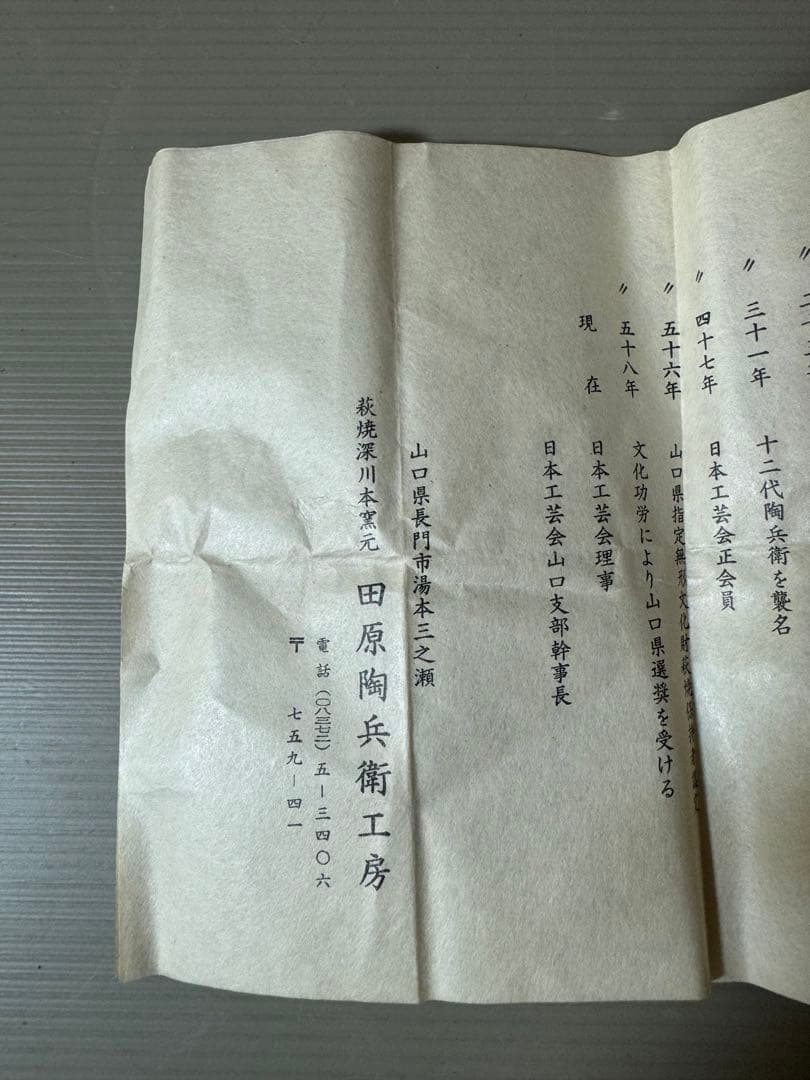 〃 三十一年 十二代陶兵衛を襲名
〃 四十七年 日本工芸会正会員
〃 五十六年 山口県指定無形文化財萩焼保持者
〃 五十八年 文化功労により山口県選奨を受ける
現在 日本工芸会理事
日本工芸会山口支部幹事長
山口県長門市湯本三之瀬
萩焼深川本窯元 田原陶兵衛工房
電話(〇八三七二)五―三四〇六
〒 七五九―四一